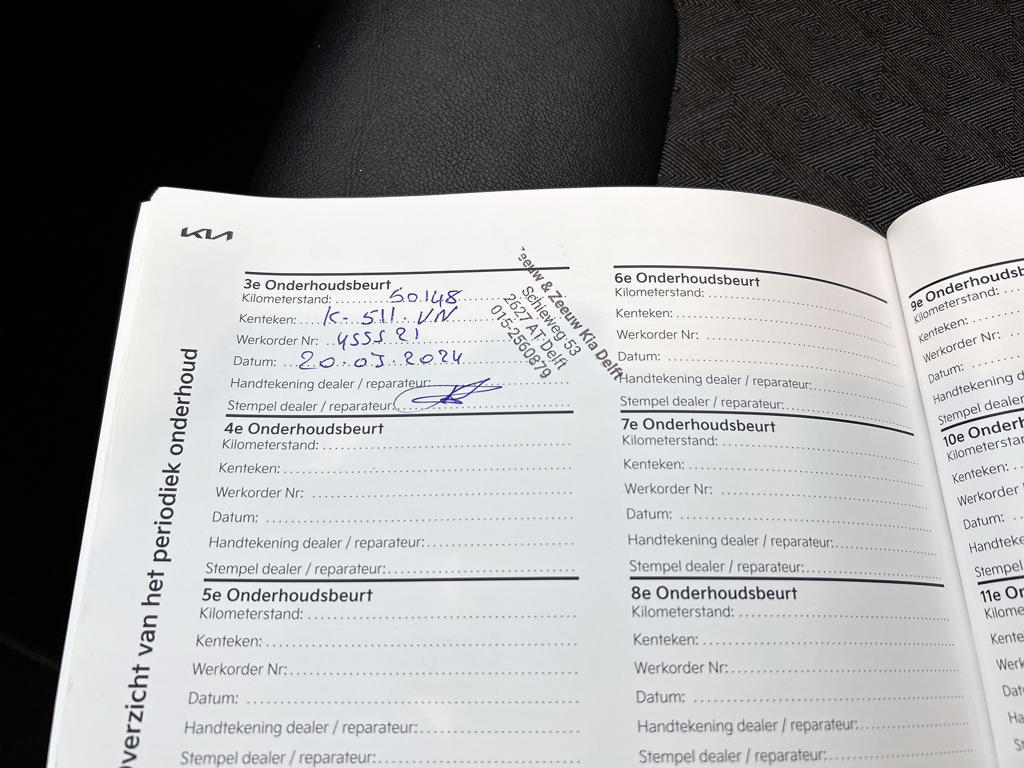 KIA
Overzicht van het periodiek onderhoud
3e Onderhoudsbeurt
Kilometerstand: 50.148
Kenteken: K-511-VN
Werkorder Nr:
Datum: 2024
Handtekening dealer / reparateur:
Stempel dealer / reparateur:
Zeeuw & Zeeuw Kia Delft
Schieweg 53
2627 AT Delft
015-2560879
4e Onderhoudsbeurt
Kilometerstand:
Kenteken:
Werkorder Nr:
Datum:
Handtekening dealer / reparateur:
Stempel dealer / reparateur:
5e Onderhoudsbeurt
Kilometerstand:
Kenteken:
Werkorder Nr:
Datum:
Handtekening dealer / reparateur:
Stempel dealer / reparateur:
6e Onderhoudsbeurt
Kilometerstand:
Kenteken:
Werkorder Nr:
Datum:
Handtekening dealer / reparateur:
Stempel dealer / reparateur:
7e Onderhoudsbeurt
Kilometerstand:
Kenteken:
Werkorder Nr:
Datum:
Handtekening dealer / reparateur:
Stempel dealer / reparateur:
8e Onderhoudsbeurt
Kilometerstand:
Kenteken:
Werkorder Nr:
Datum:
Handtekening dealer / reparateur:
Stempel dealer / reparateur:
9e Onderhoudsb
Kilometerstand:
Kenteken:
Werkorder Nr:
Datum:
Handtekening d
Stempel dealer
10e Onderh
Kilometerstan
Kenteken:
Werkorder
Datum:
Handteke
Stempel
11e On
Kilome
Kente
Werk
Dat
Ha
S